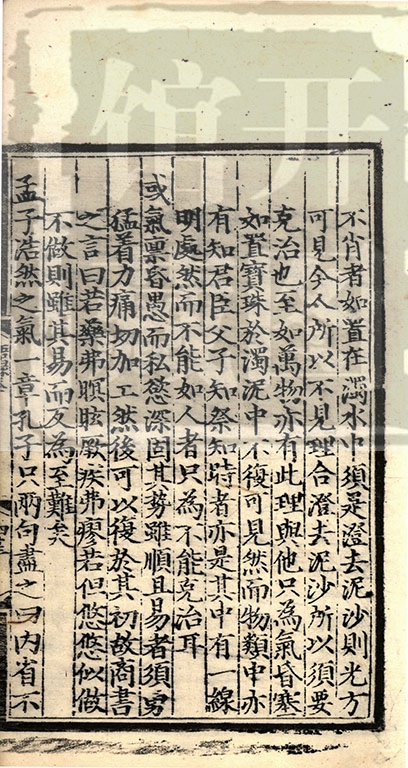 不肖者如置在濁水中須是澄去泥沙則光方
可見今人所以不見理合澄去泥沙所以須要
克治也至如萬物亦有此理與他只為氣昏塞
如置寶珠於濁泥中不復可見然而物類中亦
有知君臣父子知祭知時者亦是其中有一線
明處然而不能如人者只為不能克治耳
或氣禀昏愚而私慾深固其勢雖順且易者須勇
猛着力痛切加工然後可以復於其初故商書
之言曰若藥弗瞑眩厥疾弗瘳若但悠悠似做
不做則雖其易而反為至難矣
孟子浩然之氣一章孔子只兩句盡之曰內省不
开
馆